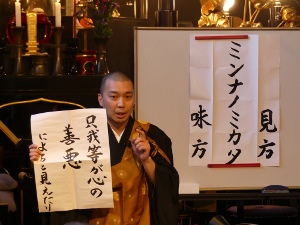 只我等が心の
善悪
によると見えたり
見方
ミンナノミカタ
味方